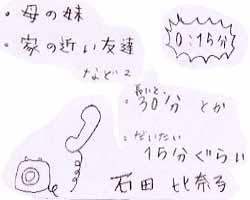 ・母の妹
・家の近い友達
など2
0:15分
長いと、
・30分 とか
・だいたい
15分ぐらい
石田 比奈子